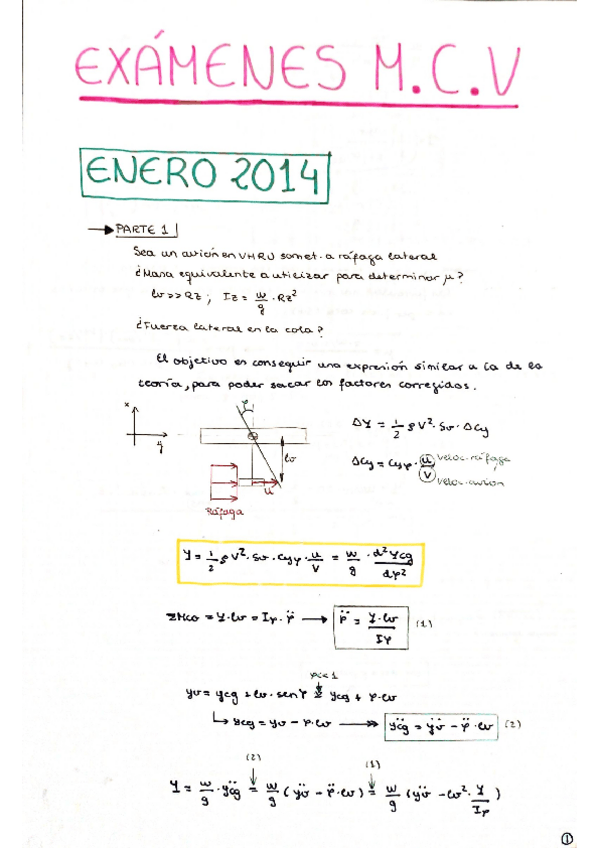 EXÁMENES M.C.V
ENERO 2014
→ PARTE 1
Sea un avión en VHRU somet. a ráfaga lateral
¿Masa equivalente a utilizar para determinar μ?
lv >> Rz ; Iz = w/g · Rz²
¿Fuerza lateral en la cola?
El objetivo es conseguir una expresión similar a la de la
teoría, para poder sacar los factores corregidos.
x
y
φ
lv
u
Ráfaga
ΔY = 1/2 ρ V² · Sv · ΔCy
ΔCy = Cyφ · u/v
veloc. ráfaga
veloc. avión
Y = 1/2 ρ V² · Sv · Cyφ · u/V = w/g · d²Ycg/dφ²
ΣMco = Y · lv = Iφ · φ̈ → φ̈ = Y·lv/Iφ (1)
φ<<1
yv = ycg + lv · sen φ ≈ ycg + φ · lv
↳ ycg = yv − φ · lv → ÿcg = ÿv − φ̈ · lv (2)
(2) (1)
Y = w/g · ÿcg = w/g (ÿv − φ̈ · lv) = w/g (ÿv − lv² · Y/Iφ)
1